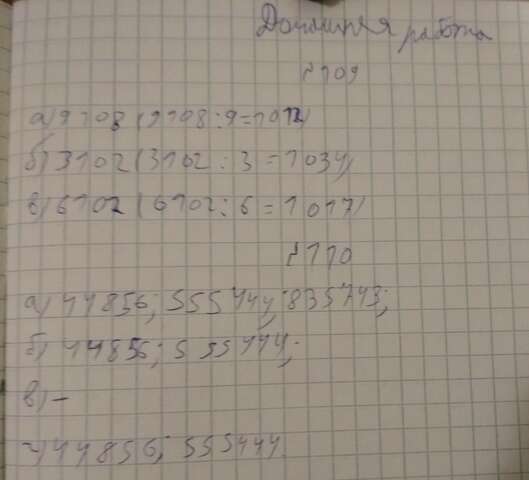 Домашняя работа
№109
а) 9108 (9108 : 9 = 1012)
б) 3102 (3102 : 3 = 1034)
в) 6102 (6102 : 6 = 1017)
№110
а) 44856; 555444; 835743;
б) 44856; 555444;
в) –
г) 44856; 555444.